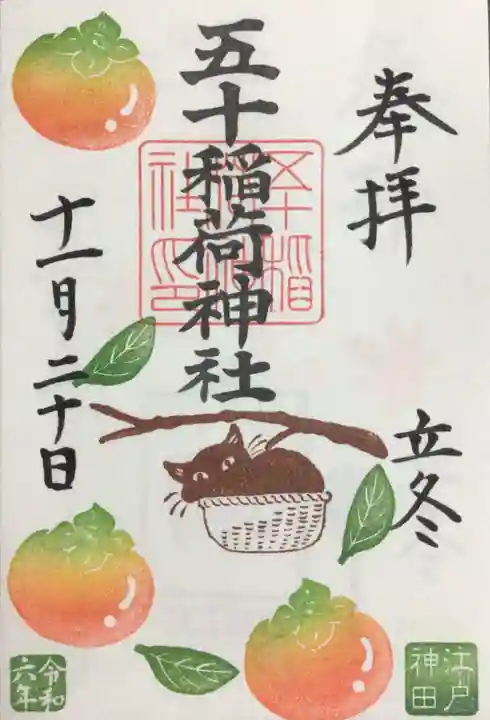 奉拝
立冬
五十稲荷神社
十一月二十日
五十稲
社印
江戸
神田
令和
六年